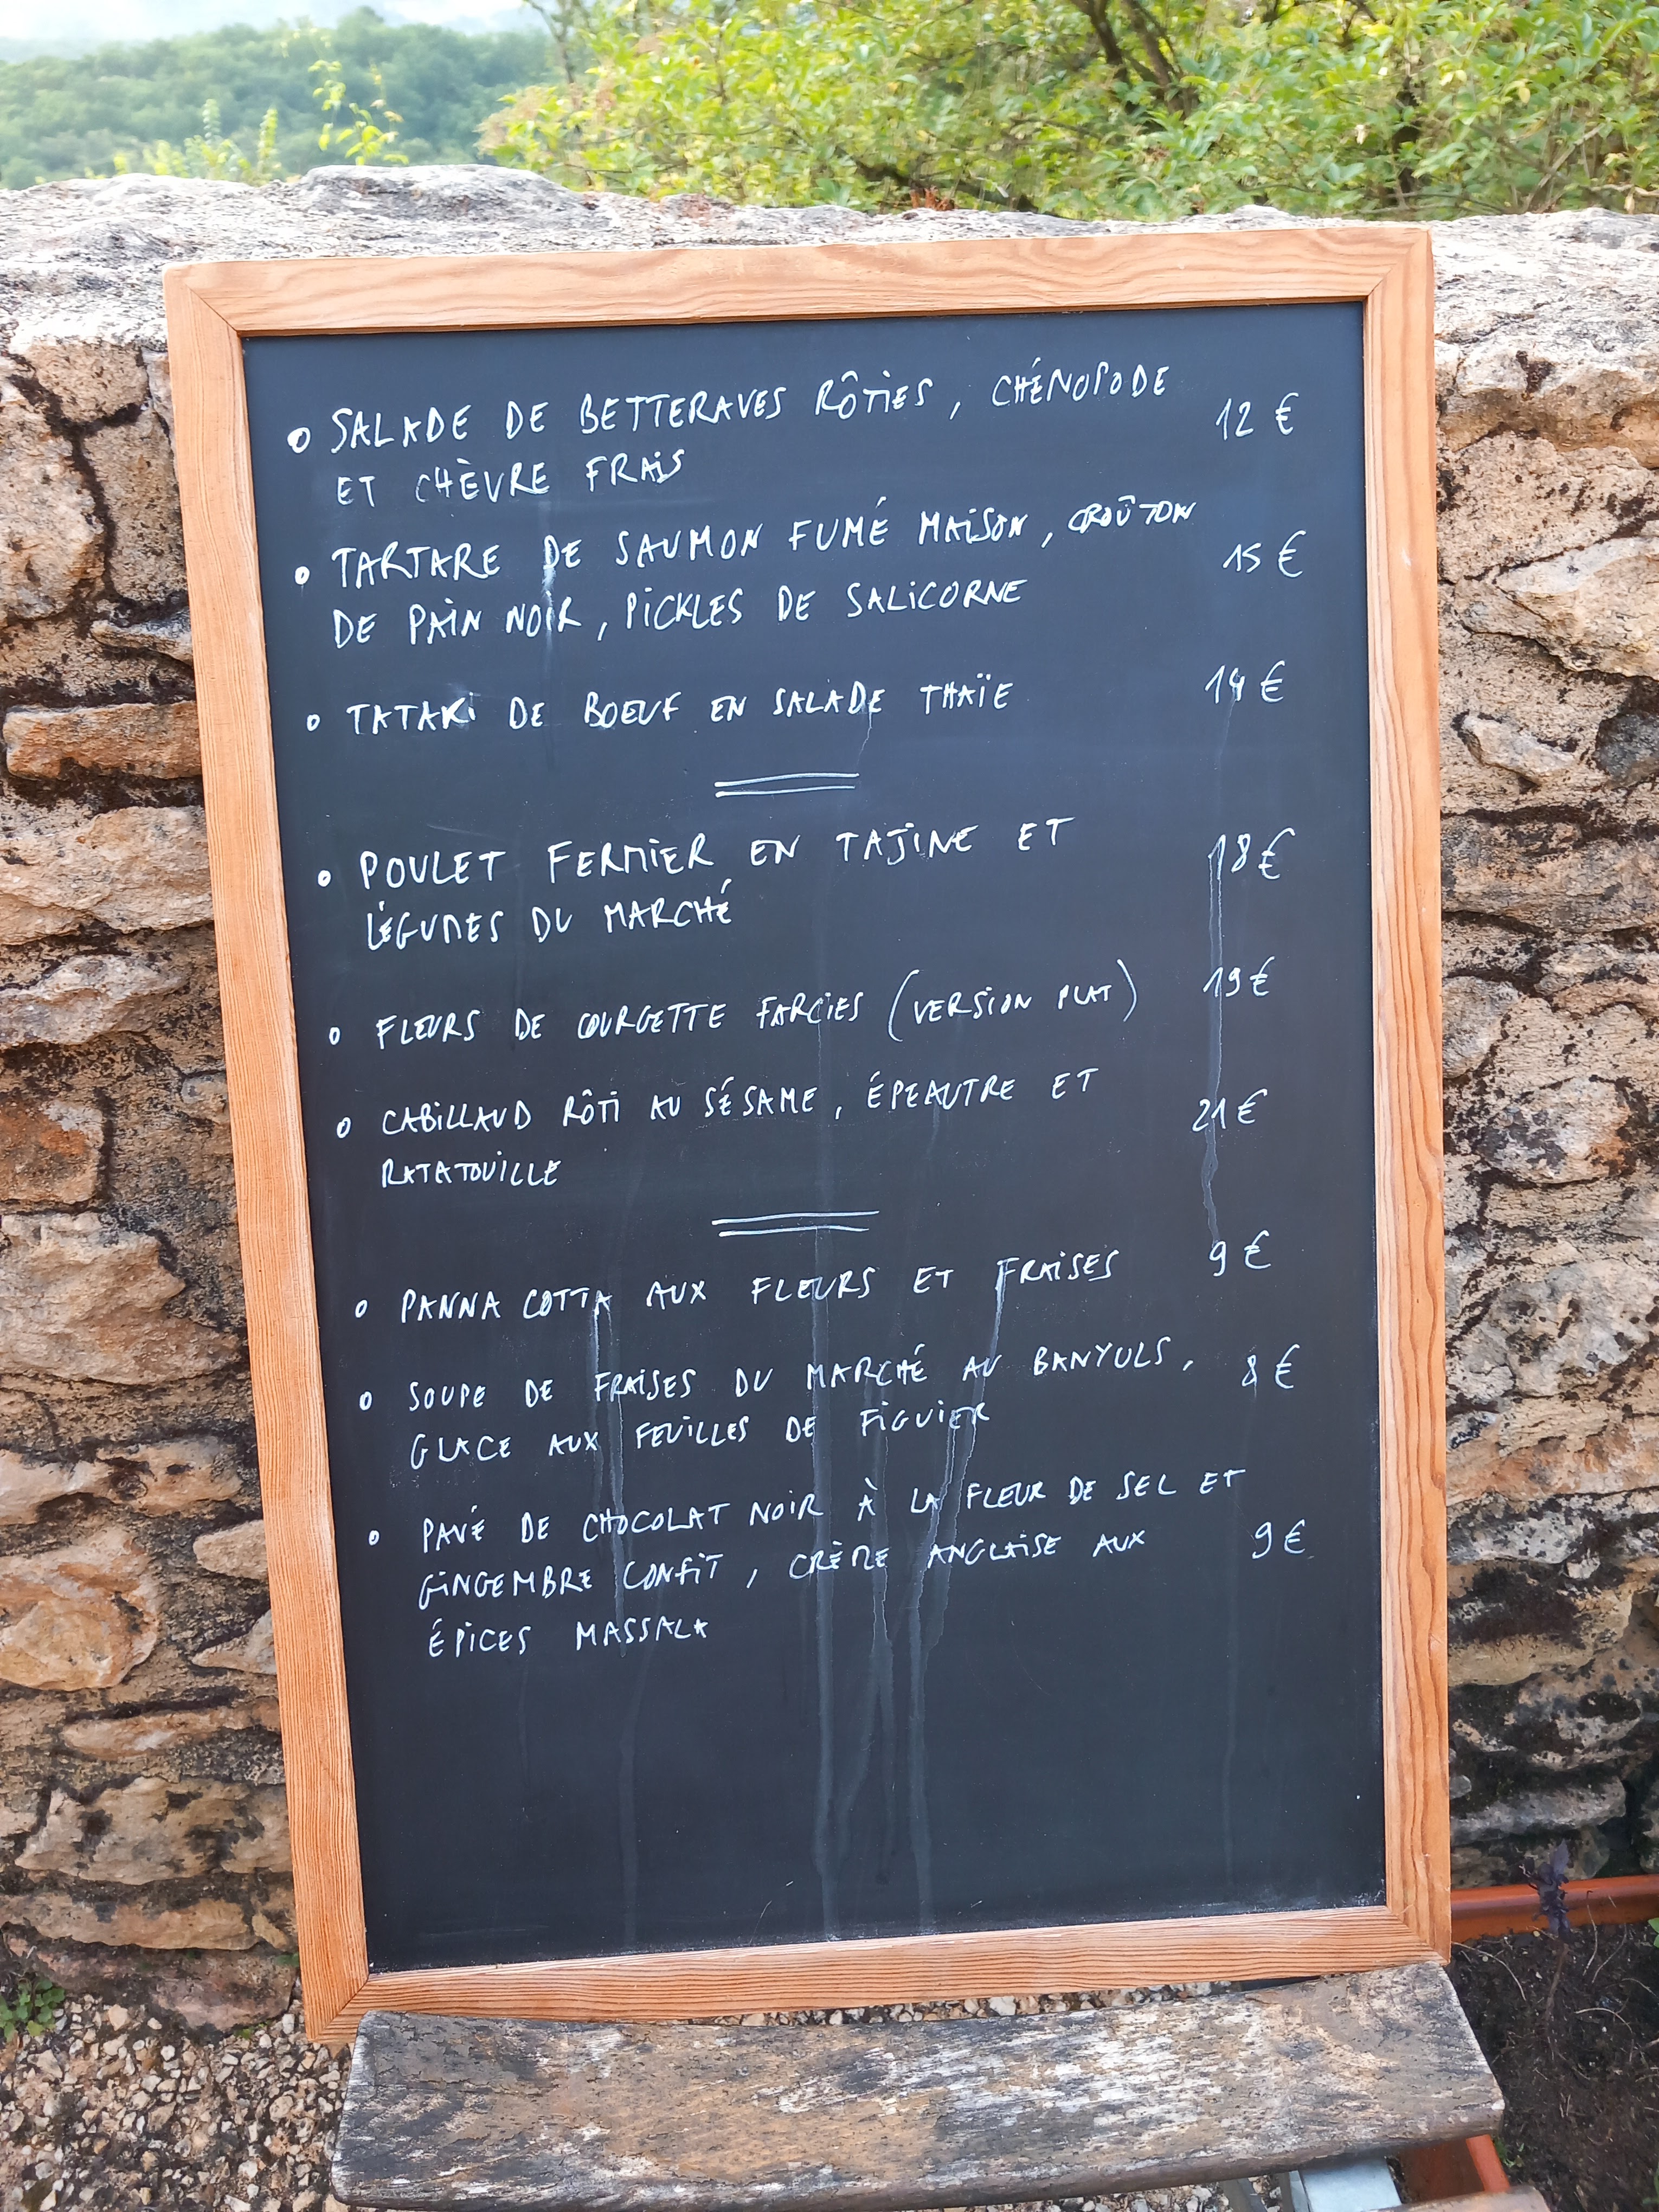 o SALADE DE BETTERAVES RÔTIES, CHÉNOPODE
ET CHÈVRE FRAIS 12 €
o TARTARE DE SAUMON FUMÉ MAISON, CROÛTON
DE PAIN NOIR, PICKLES DE SALICORNE 15 €
o TATAKI DE BOEUF EN SALADE THAÏE 14 €
o POULET FERMIER EN TAJINE ET
LÉGUMES DU MARCHÉ 18 €
o FLEURS DE COURGETTE FARCIES (VERSION PLAT) 19 €
o CABILLAUD RÔTI AU SÉSAME, ÉPEAUTRE ET
RATATOUILLE 21 €
o PANNA COTTA AUX FLEURS ET FRAISES 9 €
o SOUPE DE FRAISES DU MARCHÉ AU BANYULS,
GLACE AUX FEUILLES DE FIGUIER 8 €
o PAVÉ DE CHOCOLAT NOIR À LA FLEUR DE SEL ET
GINGEMBRE CONFIT, CRÈME ANGLAISE AUX 9 €
ÉPICES MASSALA